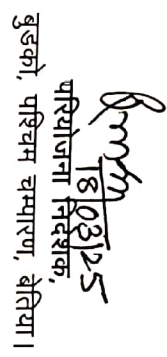 18/03/25
परियोजना निदेशक,
बुडको, पश्चिम चम्पारण, बेतिया।